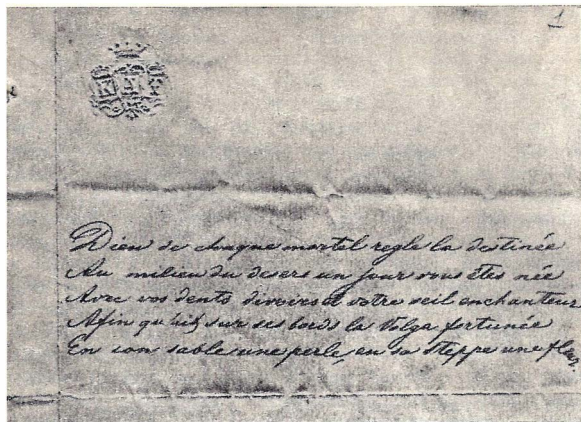 1
Dieu de chaque mortel regle la destinée
Au milieu du desert un jour vous êtes née
Avec vos dents d'ivoire et votre œil enchanteur
Afin qu'ait sur ses bords la Volga fortunée
En son sable une perle, en sa steppe une fleur.